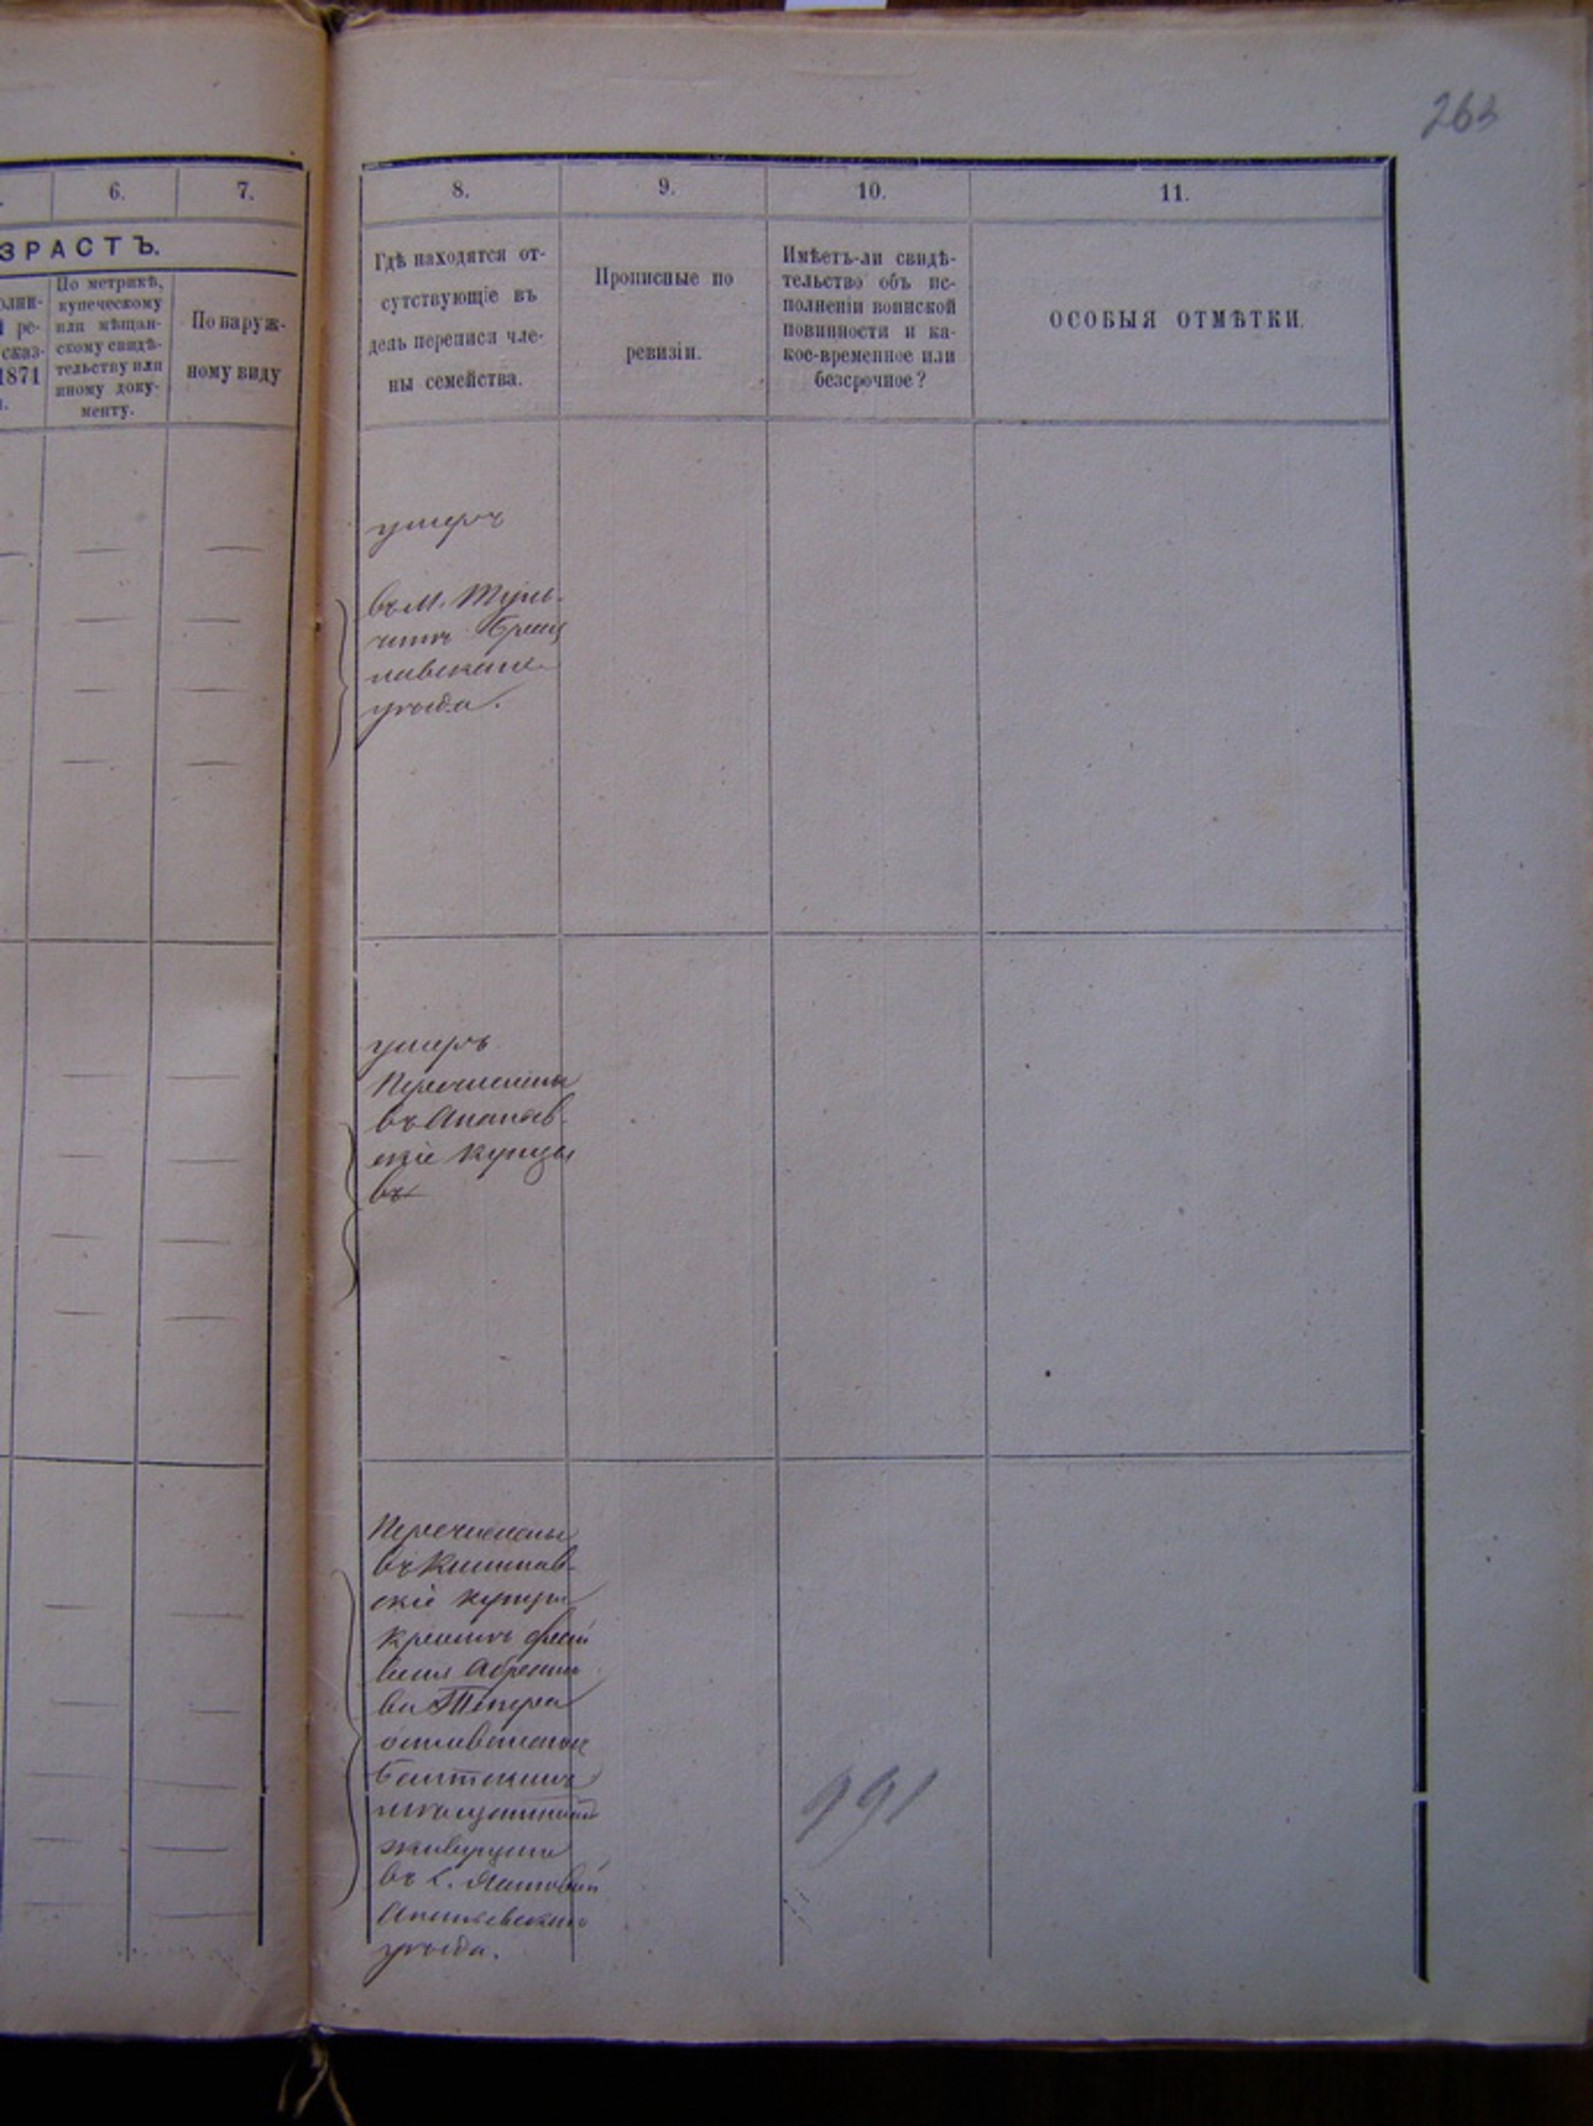 263
6.
7.
ЗРАСТЪ.
олни-
й ре-
сказ-
1871
По метрикѣ,
купеческому
или мѣщан-
скому свидѣ-
тельству или
иному доку-
менту.
По наруж-
ному виду
8.
9.
10.
11.
Гдѣ находятся от-
сутствующіе въ
день переписи чле-
ны семейства.
Прописные по
ревизіи.
Имѣетъ-ли свидѣ-
тельство объ ис-
полненіи воинской
повинности и ка-
кое-временное или
безсрочное?
ОСОБЫЯ ОТМѢТКИ.
умеръ
въ М. Туль-
чинѣ Брац
лавскаго
уѣзда.
умеръ
Перечислены
въ Ананьев-
скіе купцы
въ
Перечислены
въ Кишинев-
скіе купцы
кромѣ
оставленъ
Балтскимъ
живущіе
въ с.
Ананьевскаго
уѣзда.
191